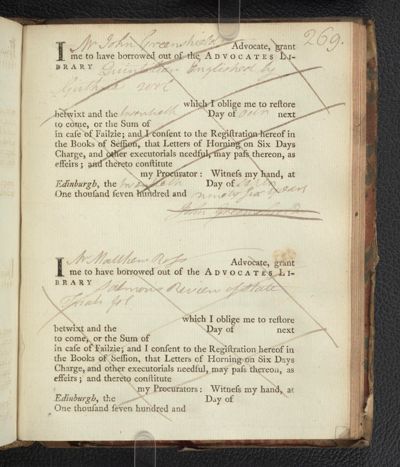 269.
I Mr John Greenshields Advocate, grant
me to have borrowed out of the ADVOCATES LI-
BRARY Quintilian Englished by
Guthrie
which I oblige me to reſtore
betwixt and the twentieth Day of next
to come, or the Sum of
in caſe of Failzie; and I conſent to the Regiſtration hereof in
the Books of Seſſion, that Letters of Horning on Six Days
Charge, and other executorials needful, may paſs thereon, as
effeirs; and thereto conſtitute
my Procurator: Witneſs my hand, at
Edinburgh, the twentieth Day of
One thouſand ſeven hundred and ninety six years
John
I Mr Matthew Ross Advocate, grant
me to have borrowed out of the ADVOCATES LI-
BRARY Review of State
Trials
which I oblige me to reſtore
betwixt and the Day of next
to come, or the Sum of
in caſe of Failzie; and I conſent to the Regiſtration hereof in
the Books of Seſſion, that Letters of Horning on Six Days
Charge, and other executorials needful, may paſs thereon, as
effeirs; and thereto conſtitute
my Procurators: Witneſs my hand, at
Edinburgh, the Day of
One thouſand ſeven hundred and